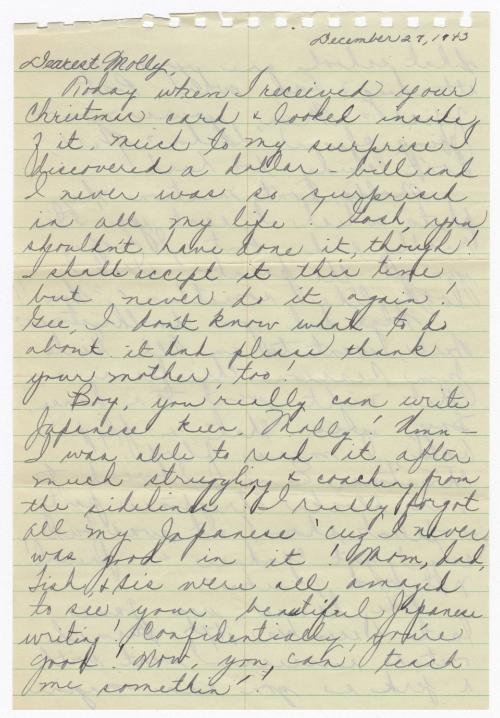 December 27, 1943
Dearest Molly,
Today when I received your
Christmas card & looked inside
of it, much to my surprise I
discovered a dollar-bill and
I never was so surprised
in all my life! Gosh, you
shouldn't have done it, though!
I shall accept it this time
but never do it again!
Gee, I don't know what to do
about it and please thank
your mother, too!
Boy, you really can write
Japanese keen, Molly! Umn-
I was able to read it after
much struggling & coaching from
the sidelines! I really forgot
all my Japanese 'cuz I never
was good in it! Mom, dad,
Tish, & Sis were all amazed
to see your beautiful Japanese
writing! Confidentially, you're
good! Now, you can teach
me somethin'!